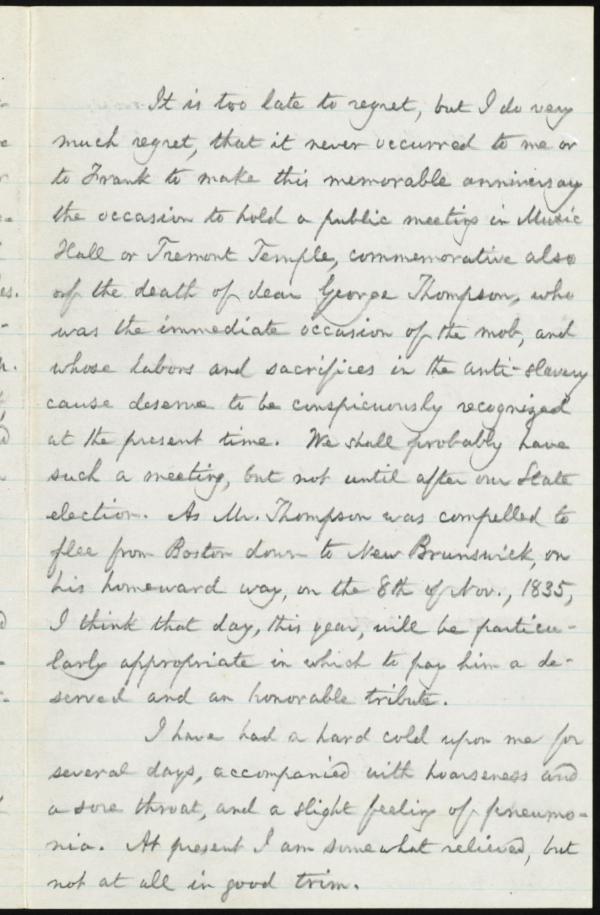 It is too late to regret, but I do very
much regret, that it never occurred to me or
to Frank to make this memorable anniversay
the occasion to hold a public meeting in Music
Hall or Tremont Temple, commemorative also
of the death of dear George Thompson, who
was the immediate occasion of the mob, and
whose labors and sacrifices in the anti-slavery
cause deserve to be conspicuously recognized
at the present time. We shall probably have
such a meeting, but not until after our State
election. As Mr. Thompson was compelled to
flee from Boston down to New Brunswick, on
his homeward way, on the 8th of Nov., 1835,
I think that day, this year, will be particu-
larly appropriate in which to pay him a de-
served and an honorable tribute.
I have had a hard cold upon me for
several days, accompanied with hoarseness and
a sore throat, and a slight feeling of pneumo-
nia. At present I am somewhat relieved, but
not at all in good trim.